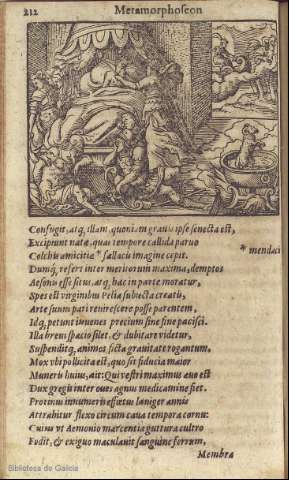 212
Metamorphoseon
Confugit, atq; illam, quoniam gravis ipse senecta est,
Excipiunt natæ, quas tempore callida parvo
Colchis amicitiæ * fallacis imagine cepit.
* mendaci
Dumq; refert inter meritorum maxima, demptos
Aesonis esse situs, atq; hac in parte moratur,
Spes est virginibus Pelia subiecta creatis,
Arte suum pari revirescere posse parentem,
Idq; petunt iuvenes precium sine fine pacisci.
Illa brevi spacio silet, & dubitare videtur,
Suspenditq; animos ficta gravitate rogantum.
Mox ubi pollicita est, quo sit fiducia maior
Muneris huius, ait: Qui vestri maximus ævo est
Dux gregis inter oves agnus medicamine fiet.
Protinus innumeris effœtus laniger annis
Attrahitur flexo circum cava tempora cornu:
Cuius ut Aemonio marcentia guttura cultro
Fodit, & exiguo maculavit sanguine ferrum,
Membra
Biblioteca de Galicia